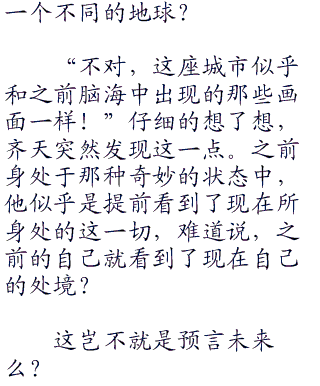 一个不同的地球？
“不对，这座城市似乎
和之前脑海中出现的那些画
面一样！”仔细的想了想，
齐天突然发现这一点。之前
身处于那种奇妙的状态中，
他似乎是提前看到了现在所
身处的这一切，难道说，之
前的自己就看到了现在自己
的处境？
这岂不就是预言未来
么？